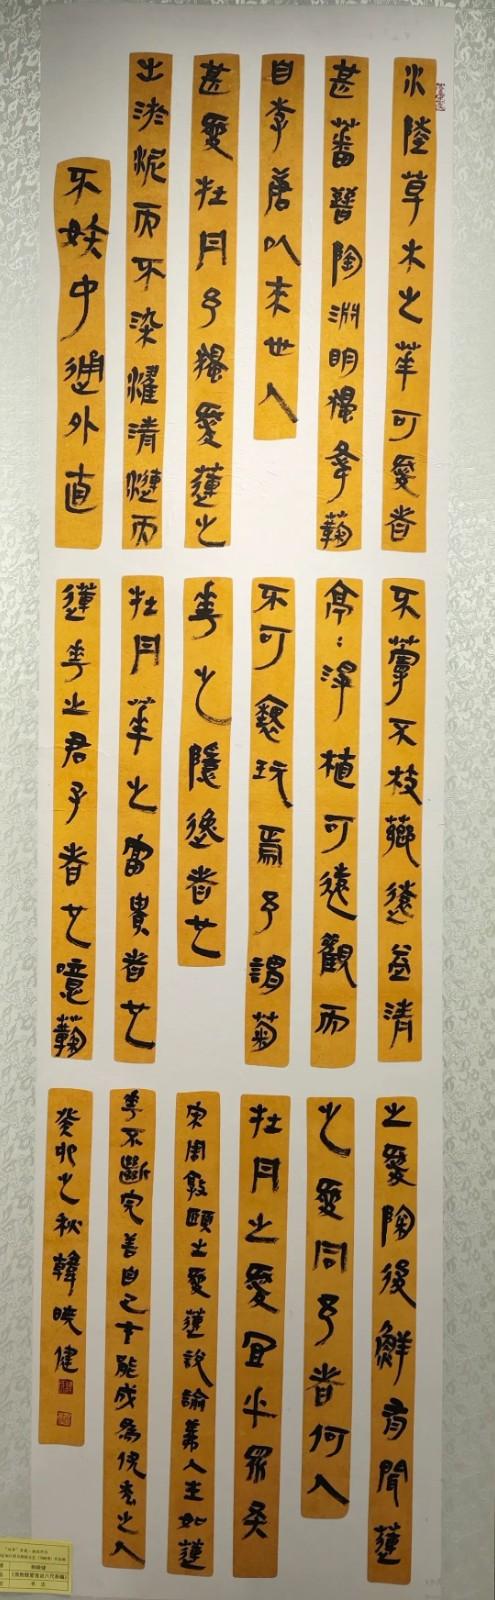 水陸草木之華可愛者
甚蕃晉陶淵明獨愛蘜
自李唐以來世人
甚愛牡丹予獨愛蓮之
出淤泥而不染濯清漣而
不妖中通外直
不蔓不枝香遠益清
亭:淨植可遠觀而
不可褻玩焉予謂菊
華之隱逸者也
牡丹華之富貴者也
蓮華之君子者也噫蘜
之愛陶後鮮有聞蓮
之愛同予者何人
牡丹之愛宜乎眾矣
宋周敦頤愛蓮說人生如蓮
華不斷完善自己才能成為優秀之人
癸卯之秋韓曉健
书法